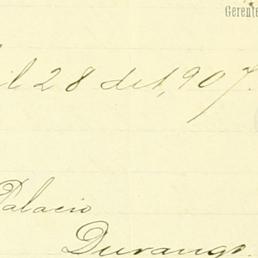 Gerente
il 28 de 1,907.
Palacio
Durango.